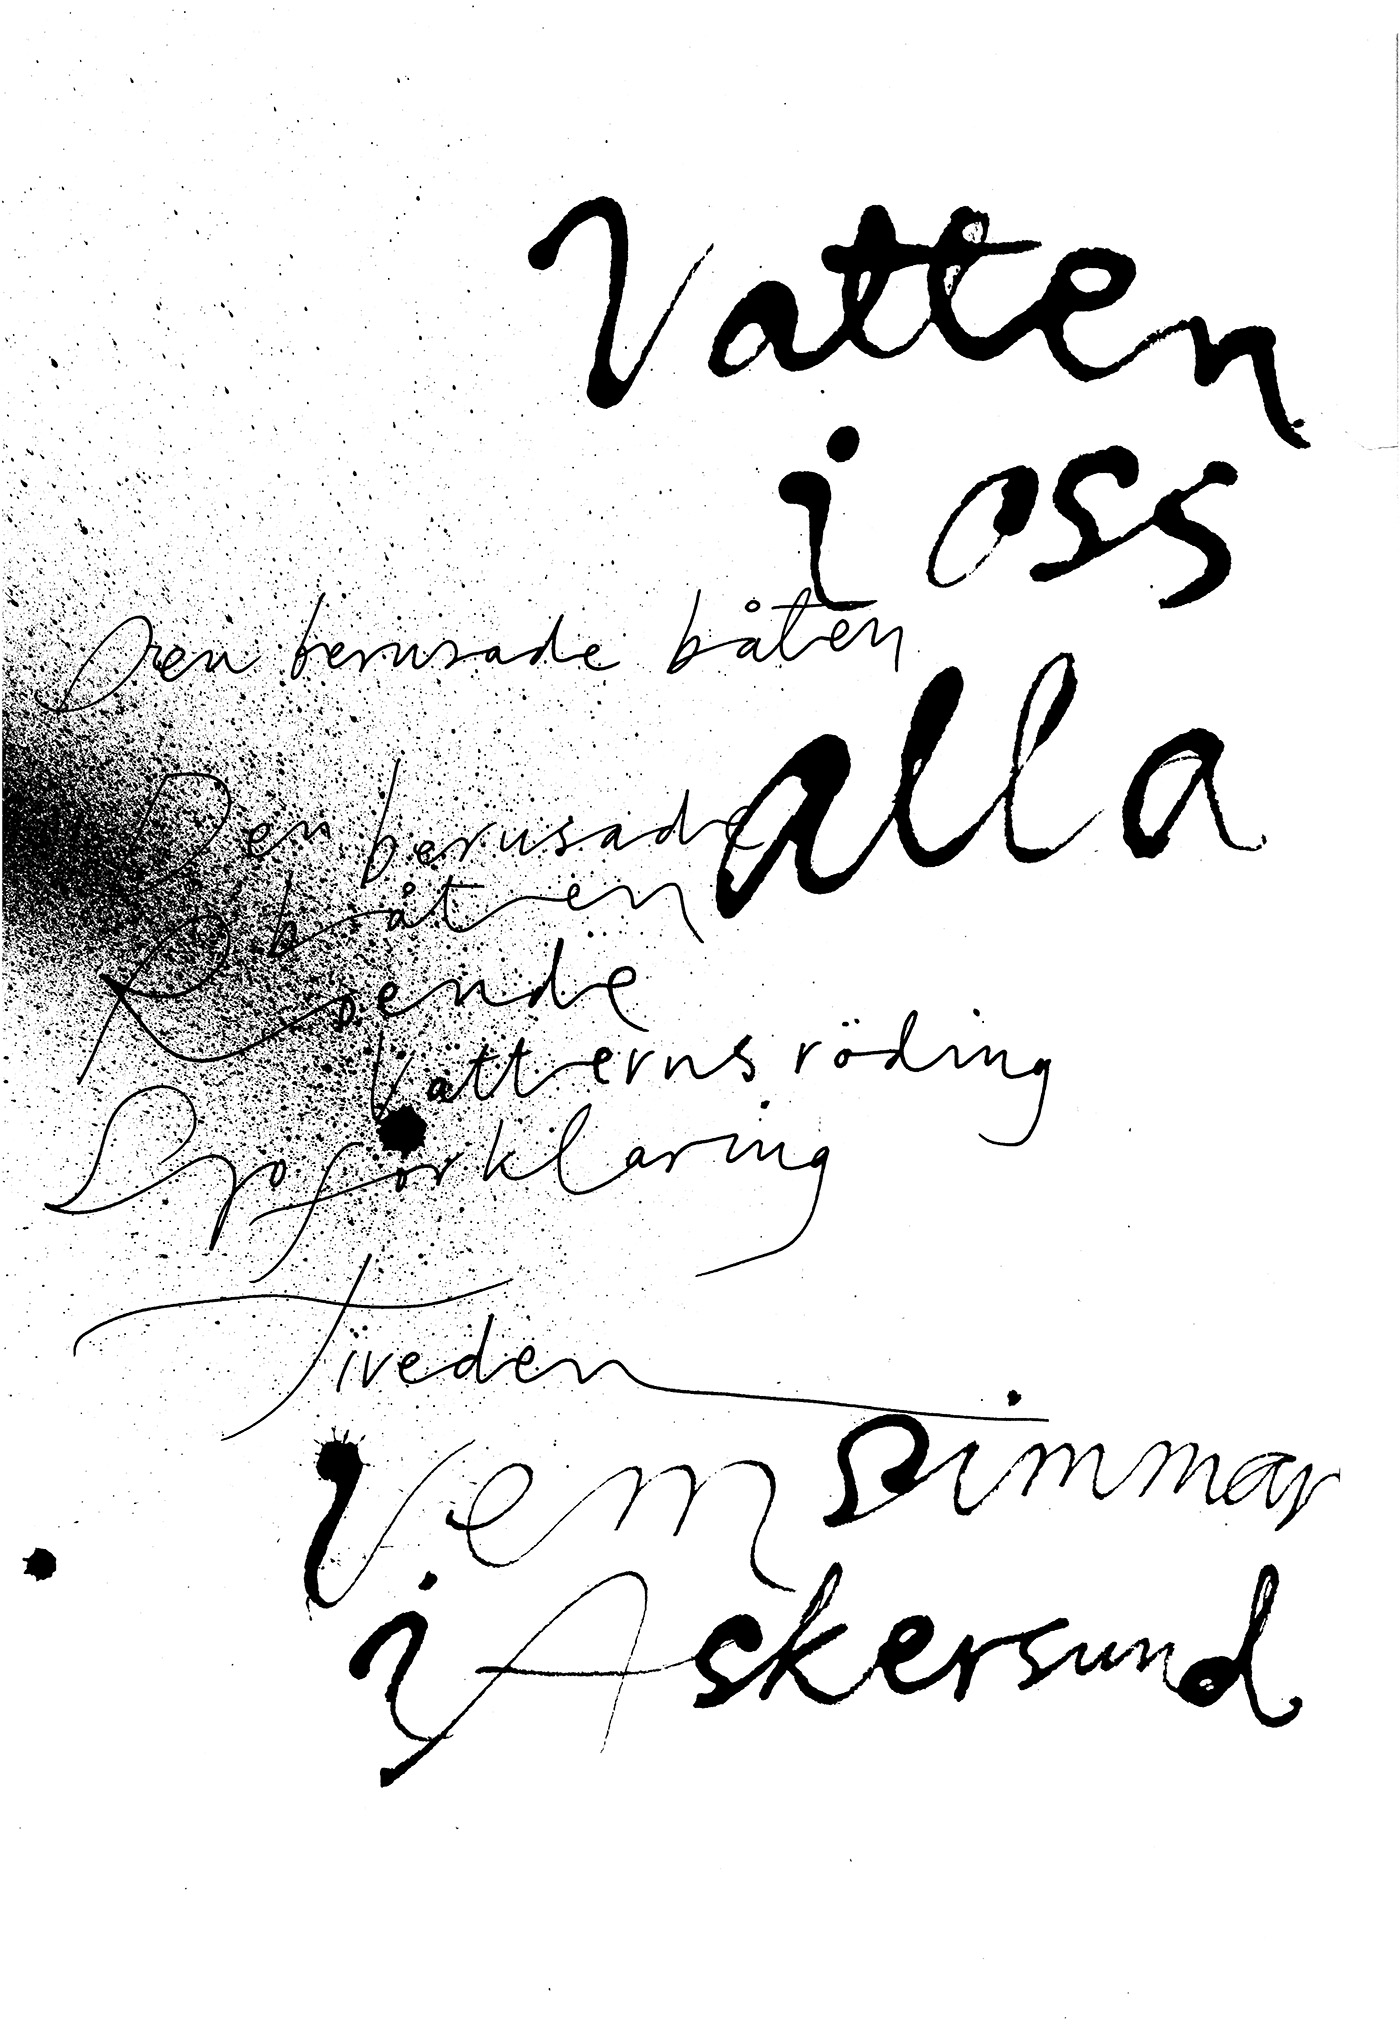 Vatten
i oss
Den berusade båten
alla
Den berusade
båten
Vätterns röding
Sjöförklaring
Tiveden
Vem simmar
i Askersund